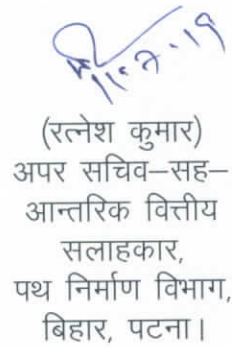 11.7.19
(रत्नेश कुमार)
अपर सचिव–सह–
आन्तरिक वित्तीय
सलाहकार,
पथ निर्माण विभाग,
बिहार, पटना।